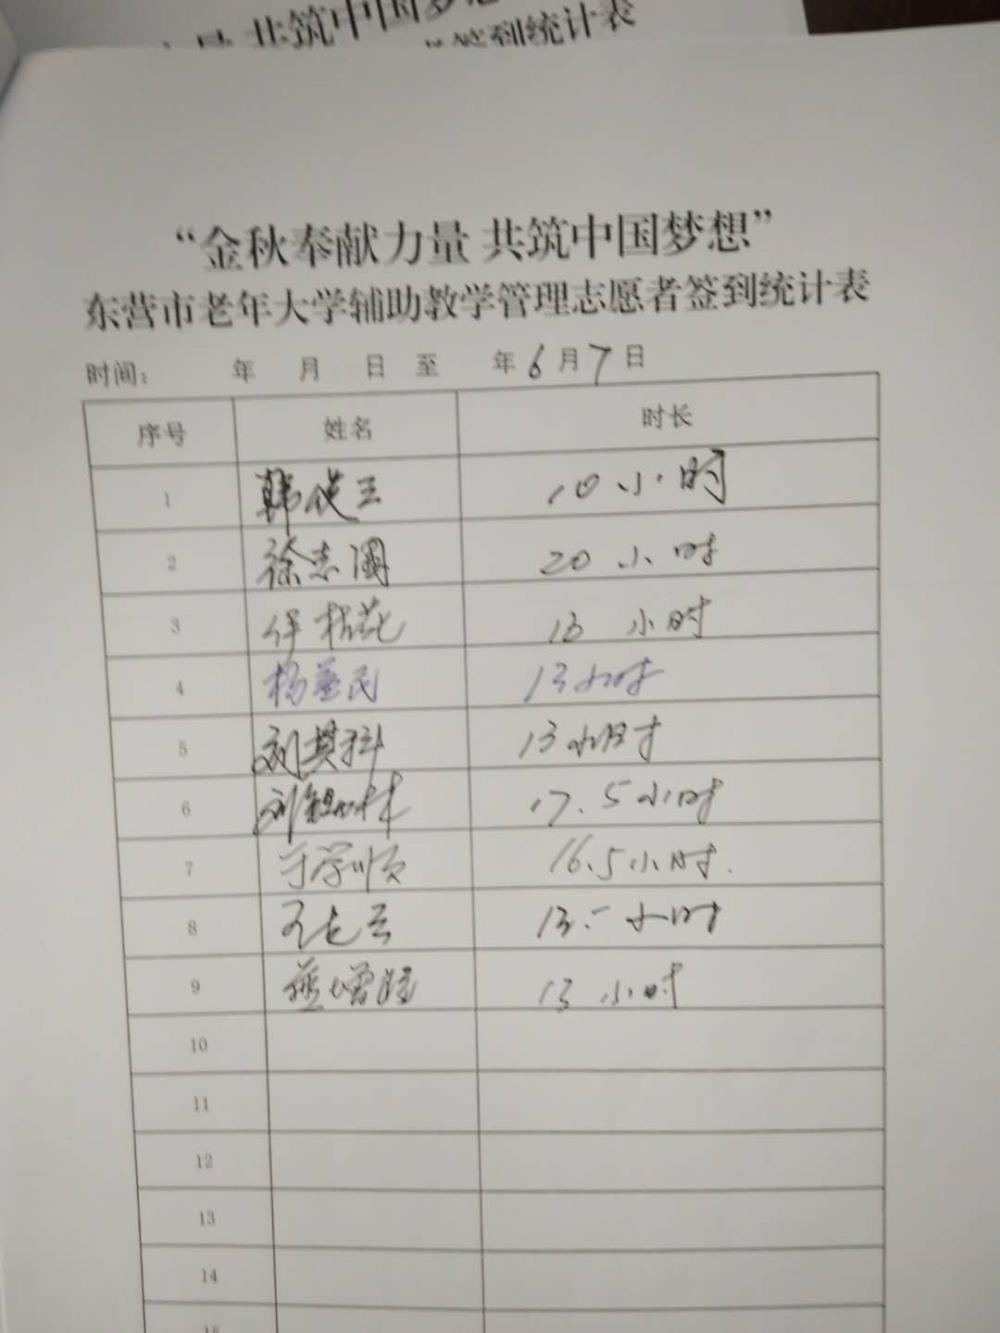 共筑中国梦
签到统计表
“金秋奉献力量 共筑中国梦想”
东营市老年大学辅助教学管理志愿者签到统计表
时间： 年 月 日 至 年6月7日
序号 姓名 时长
1 韩俊三 10小时
2 徐志国 20小时
3 小时
4 杨 民 13小时
5 刘其科 13小时
6 刘 林 17.5小时
7 于学顺 16.5小时.
8 小时
9 增 13小时
10
11
12
13
14
15